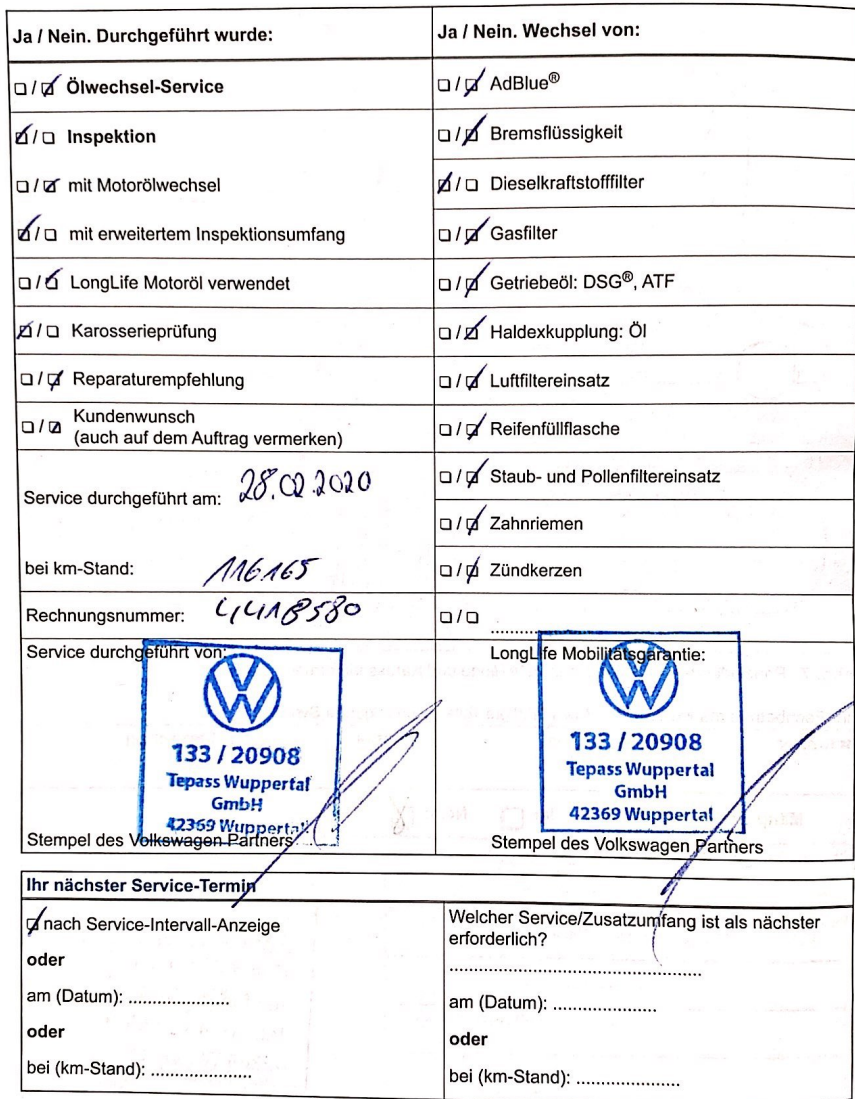 Ja / Nein. Durchgeführt wurde:
☐ / ☑ Ölwechsel-Service
☑ / ☐ Inspektion
☐ / ☑ mit Motorölwechsel
☑ / ☐ mit erweitertem Inspektionsumfang
☐ / ☑ LongLife Motoröl verwendet
☑ / ☐ Karosserieprüfung
☐ / ☑ Reparaturempfehlung
☐ / ☑ Kundenwunsch
(auch auf dem Auftrag vermerken)
Service durchgeführt am: 28.02.2020
bei km-Stand: 116165
Rechnungsnummer: 4418580
Service durchgeführt von:
133 / 20908
Tepass Wuppertal
GmbH
42369 Wuppertal
Stempel des Volkswagen Partners
Ja / Nein. Wechsel von:
☐ / ☑ AdBlue®
☐ / ☑ Bremsflüssigkeit
☑ / ☐ Dieselkraftstofffilter
☐ / ☑ Gasfilter
☐ / ☑ Getriebeöl: DSG®, ATF
☐ / ☑ Haldexkupplung: Öl
☐ / ☑ Luftfiltereinsatz
☐ / ☑ Reifenfüllflasche
☐ / ☑ Staub- und Pollenfiltereinsatz
☐ / ☑ Zahnriemen
☐ / ☑ Zündkerzen
☐ / ☐ ....................
LongLife Mobilitätsgarantie:
133 / 20908
Tepass Wuppertal
GmbH
42369 Wuppertal
Stempel des Volkswagen Partners
Ihr nächster Service-Termin
☑ nach Service-Intervall-Anzeige
oder
am (Datum): ....................
oder
bei (km-Stand): ....................
Welcher Service/Zusatzumfang ist als nächster
erforderlich?
..................................................
am (Datum): ....................
oder
bei (km-Stand): ....................